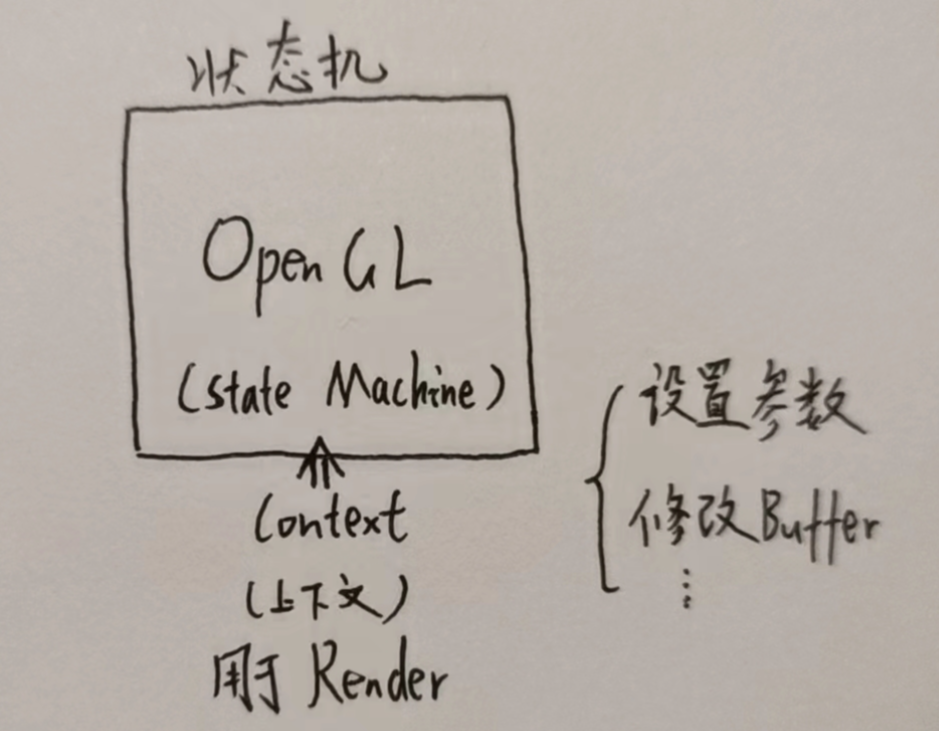 状态机
OpenGL
(state Machine)
Context
(上下文)
用于 Render
设置参数
修改Buffer
⋮